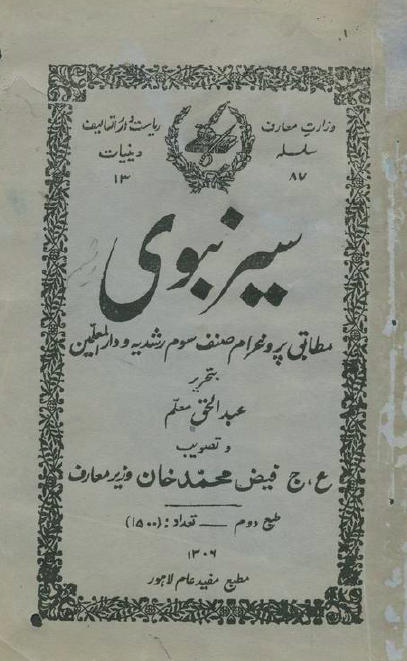 وزارت معارف
سلسله
۸۷
ریاست دارالتالیف
دینیات
۱۳
سیر نبوی
مطابق پروغرام صنف سوم رشدیه و دارالمعلمین
بتحریر
عبدالحق معلم
و تصویب
ع، ج فیض محمد خان وزیر معارف
طبع دوم ـــ تعداد: (۱۵۰۰)
۱۳۰۶
مطبع مفید عام لاہور